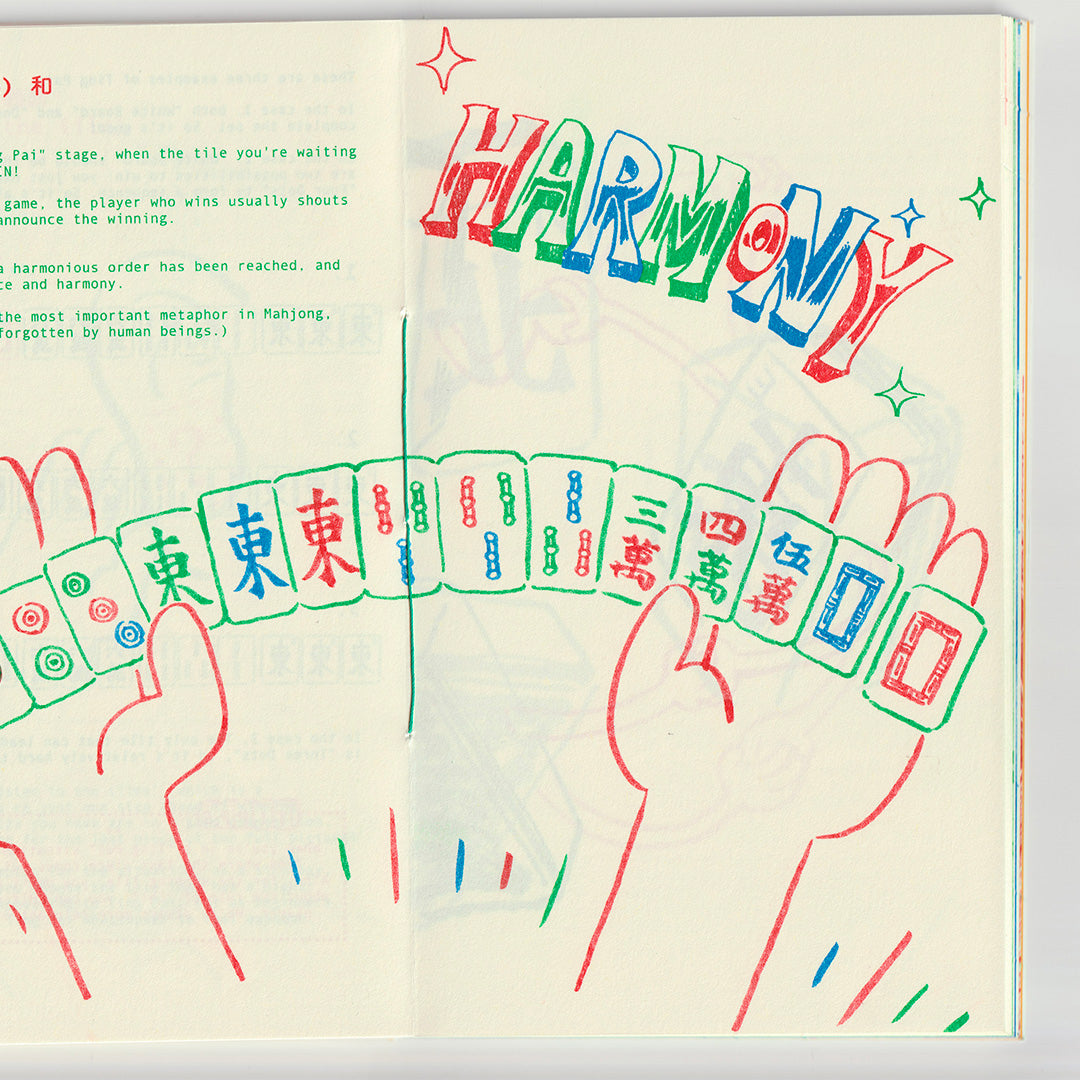 ) 和
g Pai" stage, when the tile you're waiting
IN!
game, the player who wins usually shouts
announce the winning.
a harmonious order has been reached, and
ce and harmony.
the most important metaphor in Mahjong,
forgotten by human beings.)
HARMONY
東 東 東 三萬 四萬 伍萬